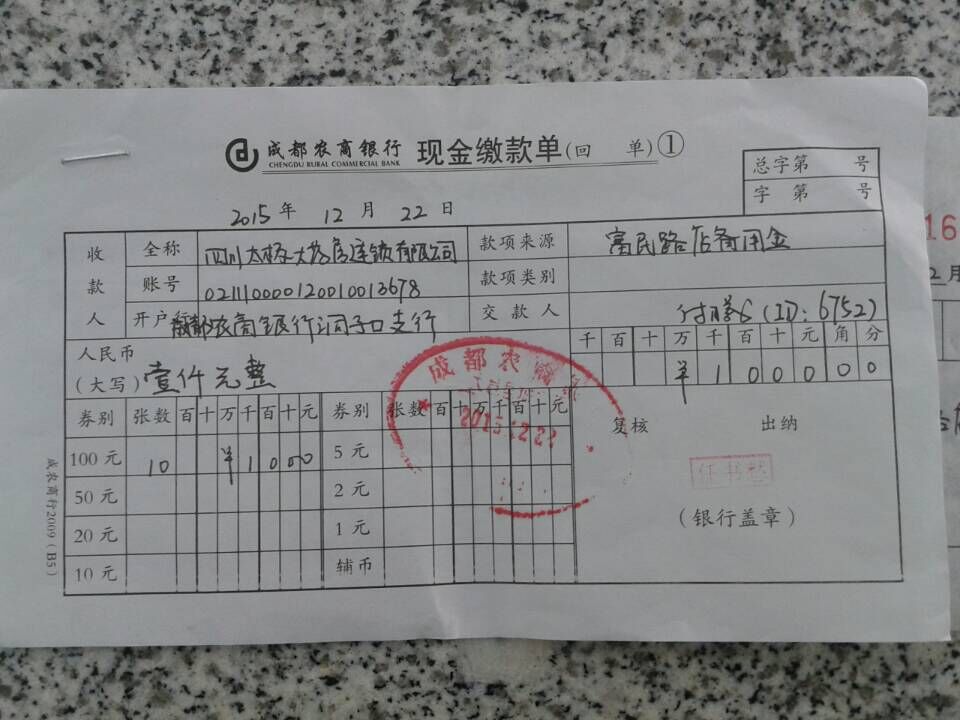 成都农商银行 现金缴款单(回 单)①
CHENGDU RURAL COMMERCIAL BANK
总字第 号
字 第 号
2015 年 12 月 22 日
收款人 全称 四川太极大药房连锁有限公司 款项来源 富民路店备用金
账号 021110000120010013678 款项类别
开户行 成都农商银行洞子口支行 交款人 (ID: 6752)
人民币
(大写) 壹仟元整
千 百 十 万 千 百 十 元 角 分
¥ 1 0 0 0 0 0
券别 张数 百 十 万 千 百 十 元 券别 张数 百 十 万 千 百 十 元 复核 出纳
100元 10 ¥ 1 0 0 0 5 元
50 元 2 元
20 元 1 元
10 元 辅币
(银行盖章)
成都农
2015.12.22
成农商行2009(B5)
16
2月